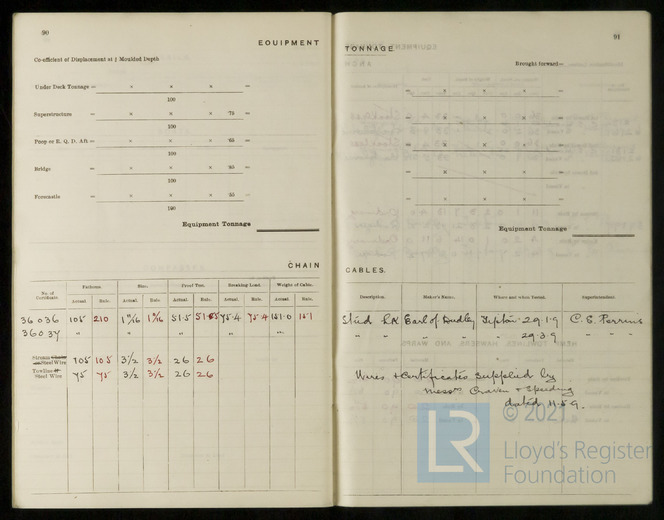 90
EQUIPMENT
Co-efficient of Displacement at ¾ Moulded Depth
Under Deck Tonnage = × × × =
100
Superstructure = × × × ·75 =
100
Poop or R. Q. D. Aft = × × × =
100
Bridge = × × × =
100
Forecastle = × × × =
100
Equipment Tonnage
CHAIN
No. of Certificate. Fathoms. Size. Proof Test. Breaking Load. Weight of Cable.
Actual. Rule. Actual. Rule. Actual. Rule. Actual. Rule. Actual. Rule.
36036 105 210 1 11/16 51·5 75·4 75·4 141·0
36037 " " " " "
Steel Wire 105 105 3/2 3/2 26 26
Towline Steel Wire 75 75 3/2 3/2 26 26
91
TONNAGE
Brought forward=
= × × × =
= × × × =
= × × × =
= × × × =
Equipment Tonnage
CABLES.
Description. Maker's Name. Where and when Tested. Superintendent.
Stud Lk Earl of Dudley Tipton 29.1.9 C. E. Perrins
" " " " " " 29.3.9 " " "
Wires + Certificates supplied by
Messrs Craven + Speeding
dated 11.5.9.
© 2021
LR
Lloyd's Register
Foundation